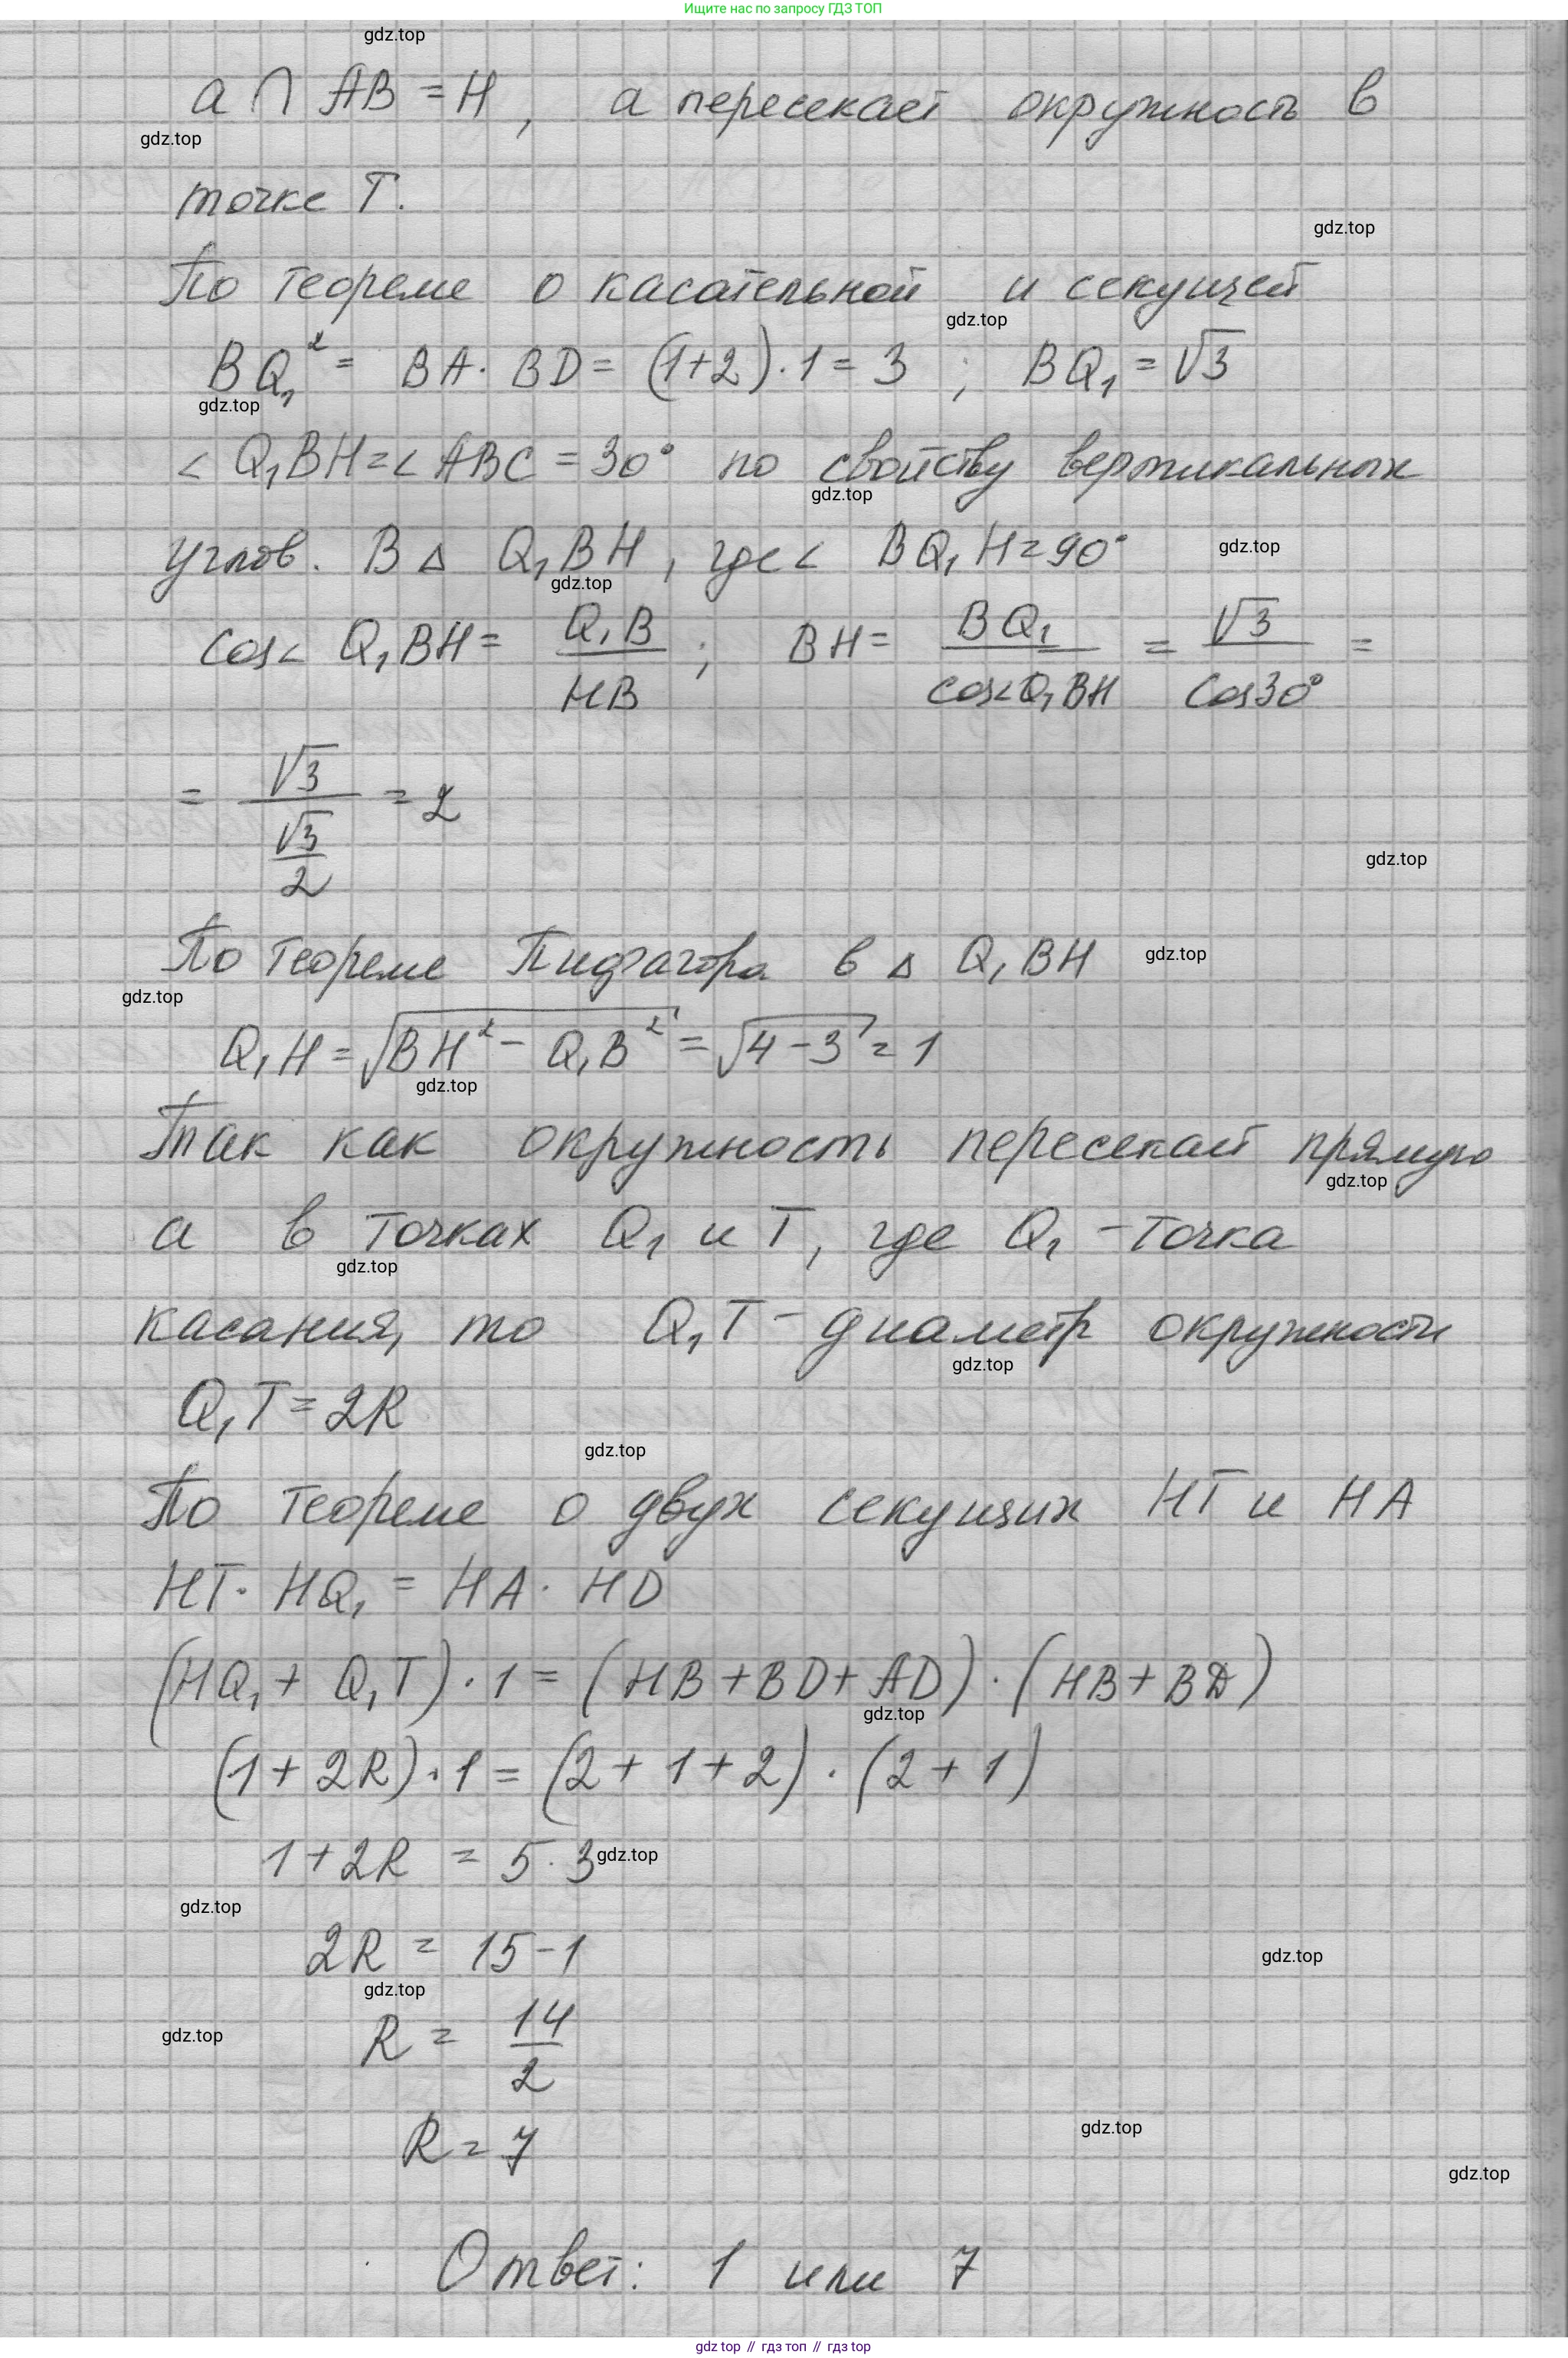 Ищите нас по запросу ГДЗ ТОП
gdz.top
a ∩ AB = H, a пересекает окружность в
gdz.top
точке T.
gdz.top
По теореме о касательной и секущей
gdz.top
BQ₁² = BA · BD = (1+2) · 1 = 3 ; BQ₁ = √3
gdz.top
< Q₁BH = < ABC = 30° по свойству вертикальных
gdz.top
углов. В Δ Q₁BH, где < BQ₁H = 90°
gdz.top
gdz.top
cos< Q₁BH = Q₁B / HB ; BH = BQ₁ / cos<Q₁BH = √3 / cos30° =
= √3 / (√3/2) = 2
gdz.top
По теореме Пифагора в Δ Q₁BH
gdz.top
gdz.top
Q₁H = √(BH² - Q₁B²) = √(4-3) = 1
gdz.top
Так как окружность пересекает прямую
gdz.top
a в точках Q₁ и T, где Q₁ - точка
gdz.top
касания, то Q₁T - диаметр окружности
gdz.top
Q₁T = 2R
gdz.top
По теореме о двух секущих HT и HA
HT · HQ₁ = HA · HD
(HQ₁ + Q₁T) · 1 = (HB + BD + AD) · (HB + BD)
gdz.top
(1 + 2R) · 1 = (2 + 1 + 2) · (2 + 1)
1 + 2R = 5 · 3
gdz.top
gdz.top
2R = 15 - 1
gdz.top
gdz.top
R = 14 / 2
gdz.top
R = 7
gdz.top
gdz.top
Ответ: 1 или 7
gdz top // гдз топ // гдз top